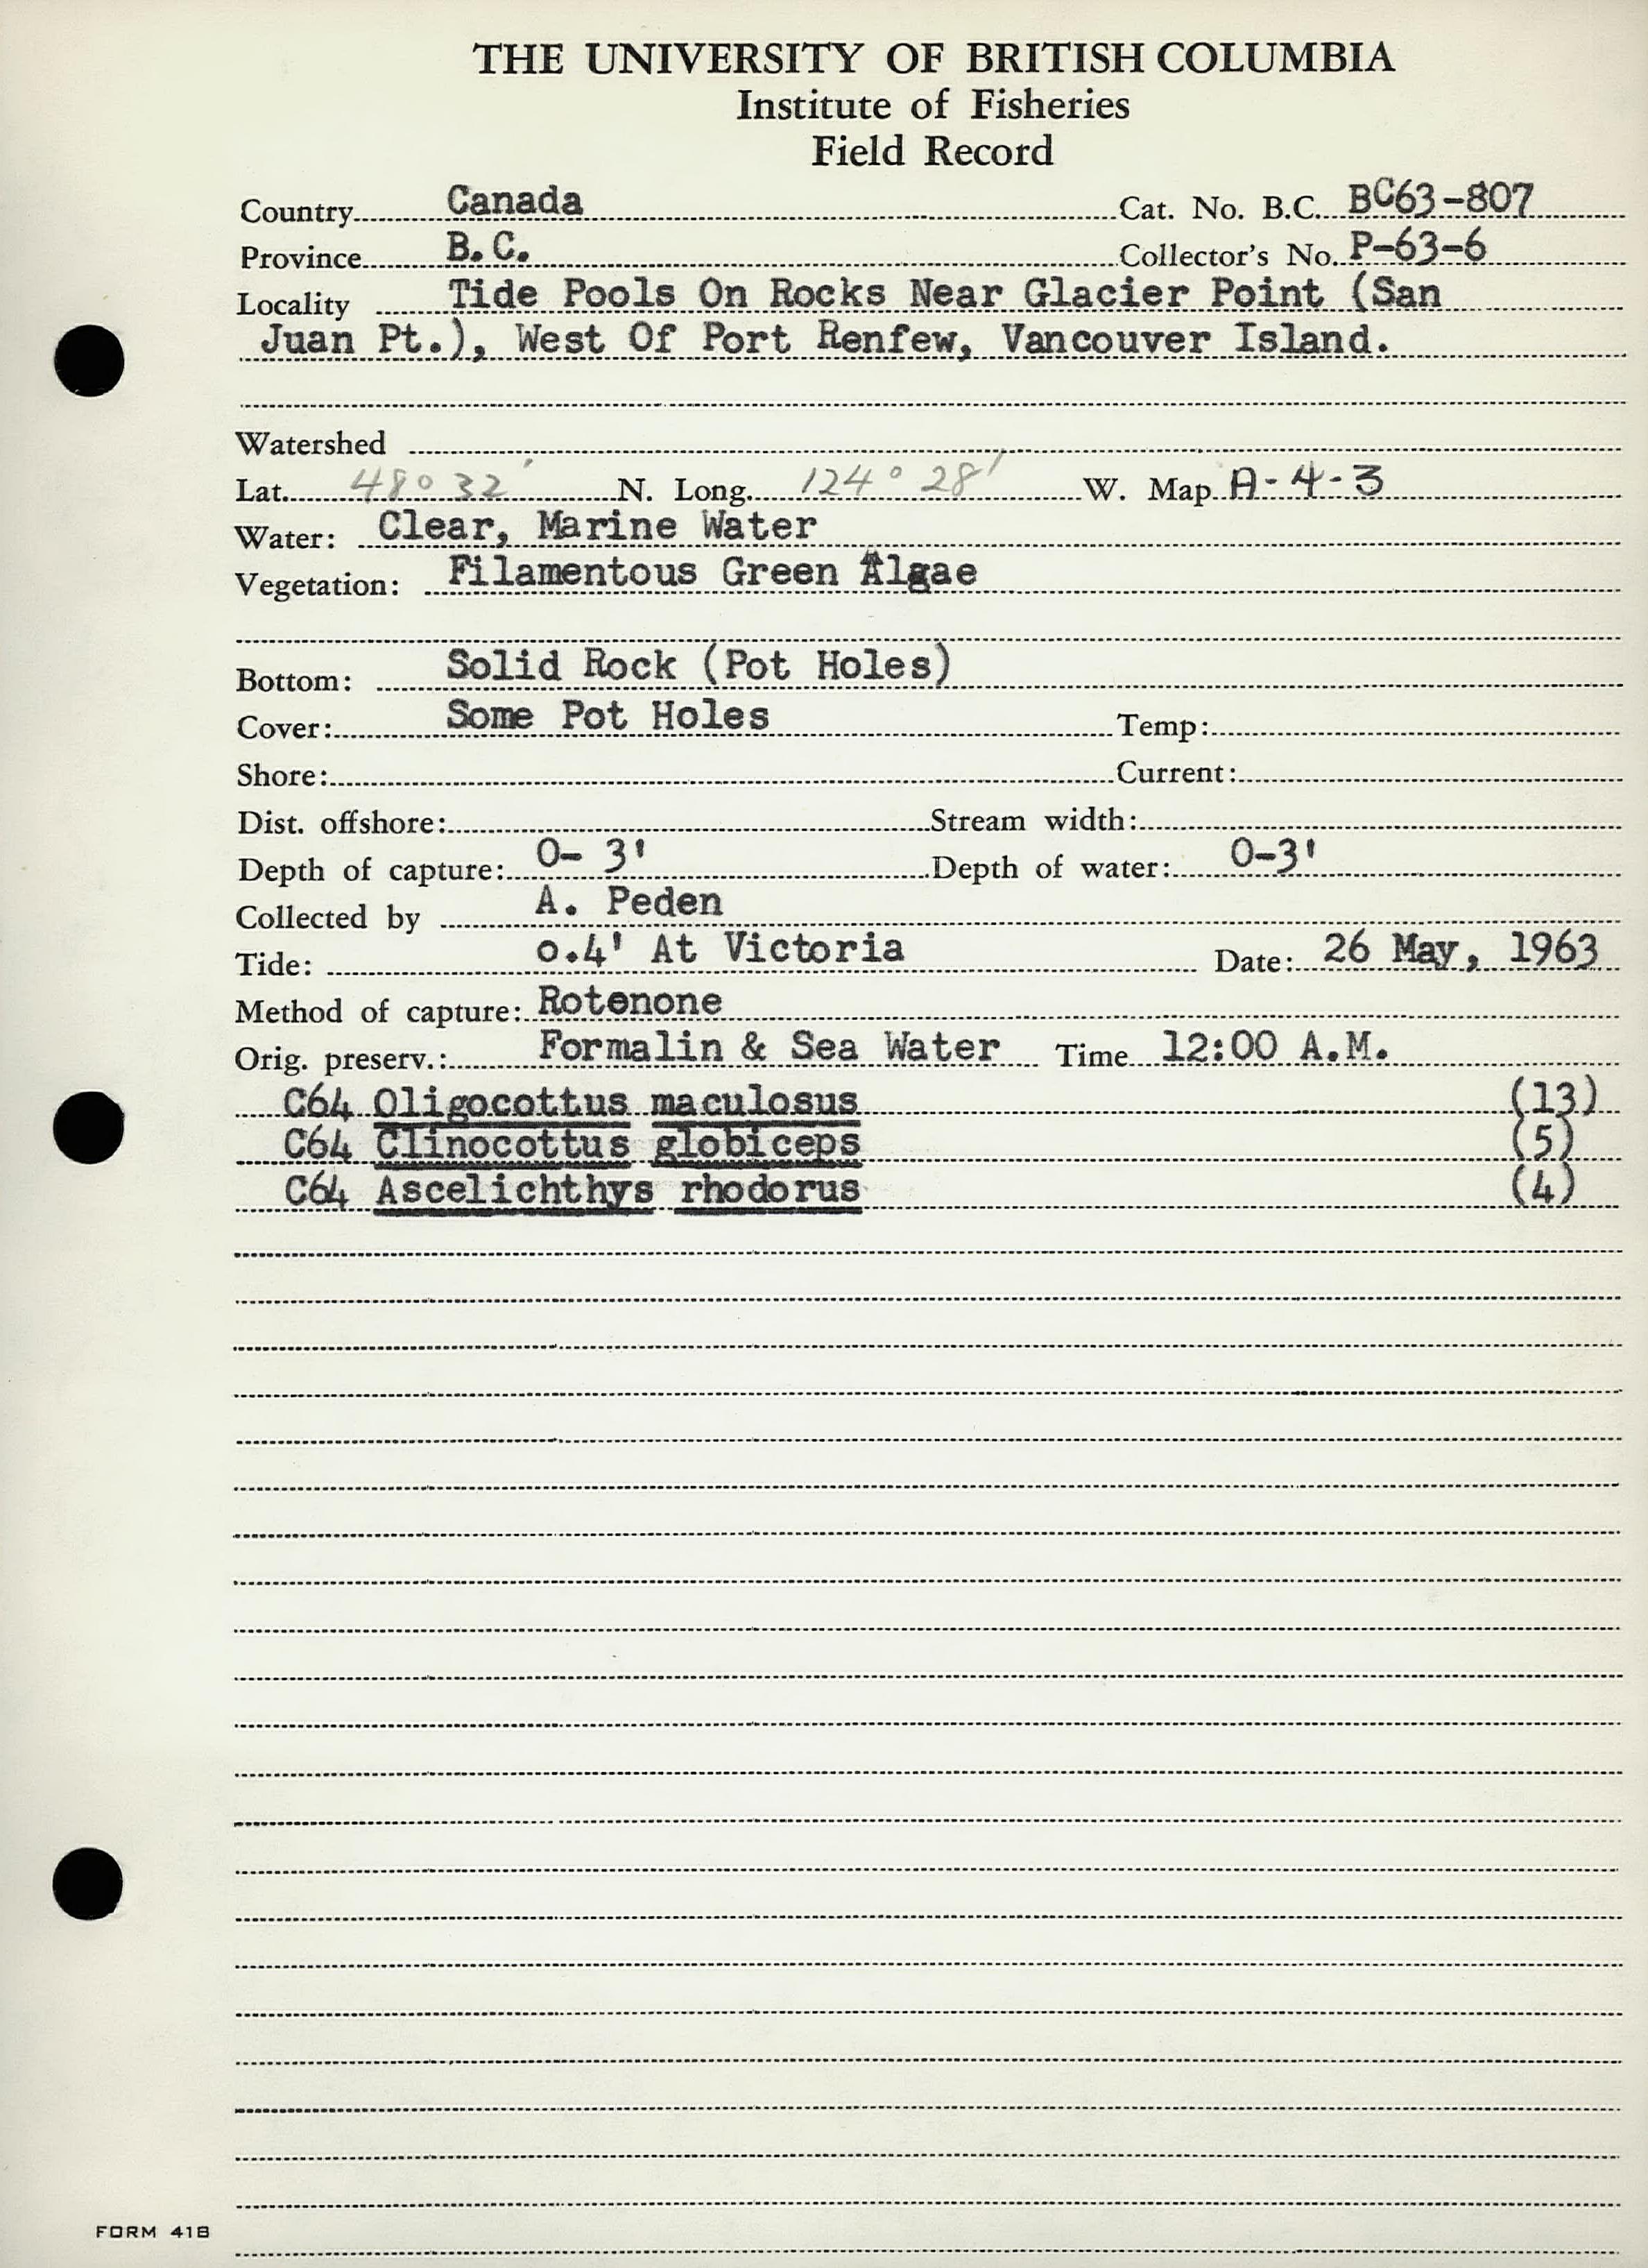 THE UNIVERSITY OF BRITISH COLUMBIA
Institute of Fisheries
Field Record
Country Canada Cat. No. B.C. BC63-807
Province B.C. Collector's No. P-63-6
Locality Tide Pools On Rocks Near Glacier Point (San
Juan Pt.), West Of Port Renfew, Vancouver Island.
Watershed
Lat. 48° 32' N. Long. 124° 28' W. Map A-4-3
Water: Clear, Marine Water
Vegetation: Filamentous Green Algae
Bottom: Solid Rock (Pot Holes)
Cover: Some Pot Holes Temp:
Shore: Current:
Dist. offshore: Stream width:
Depth of capture: 0- 3' Depth of water: 0-3'
Collected by A. Peden
Tide: 0.4' At Victoria Date: 26 May, 1963
Method of capture: Rotenone
Orig. preserv.: Formalin & Sea Water Time 12:00 A.M.
C64 Oligocottus maculosus (13)
C64 Clinocottus globiceps (5)
C64 Ascelichthys rhodorus (4)
FORM 41B